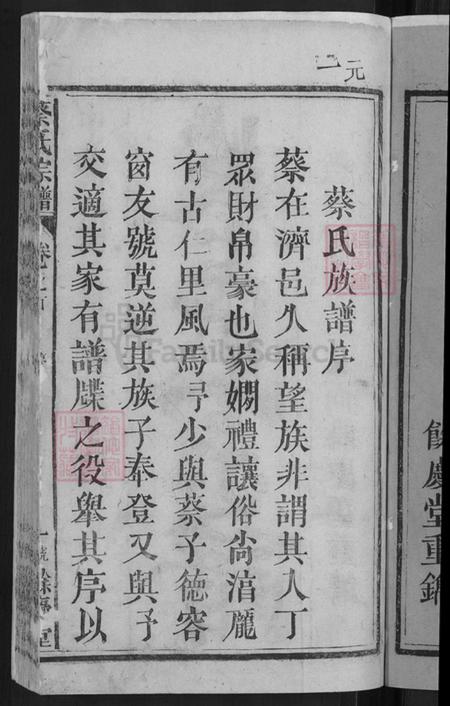 元
一
蔡氏族譜序
蔡在濟邑久稱望族非謂其人丁
眾財帛豪也家嫻禮讓俗尚淳龐
有古仁里風焉予少與蔡子德容
窗友號莫逆其族子奉登又與予
交適其家有譜牒之役舉其序以
蔡氏宗譜
卷之首
餘慶堂
餘慶堂重鐫
FamilySearch